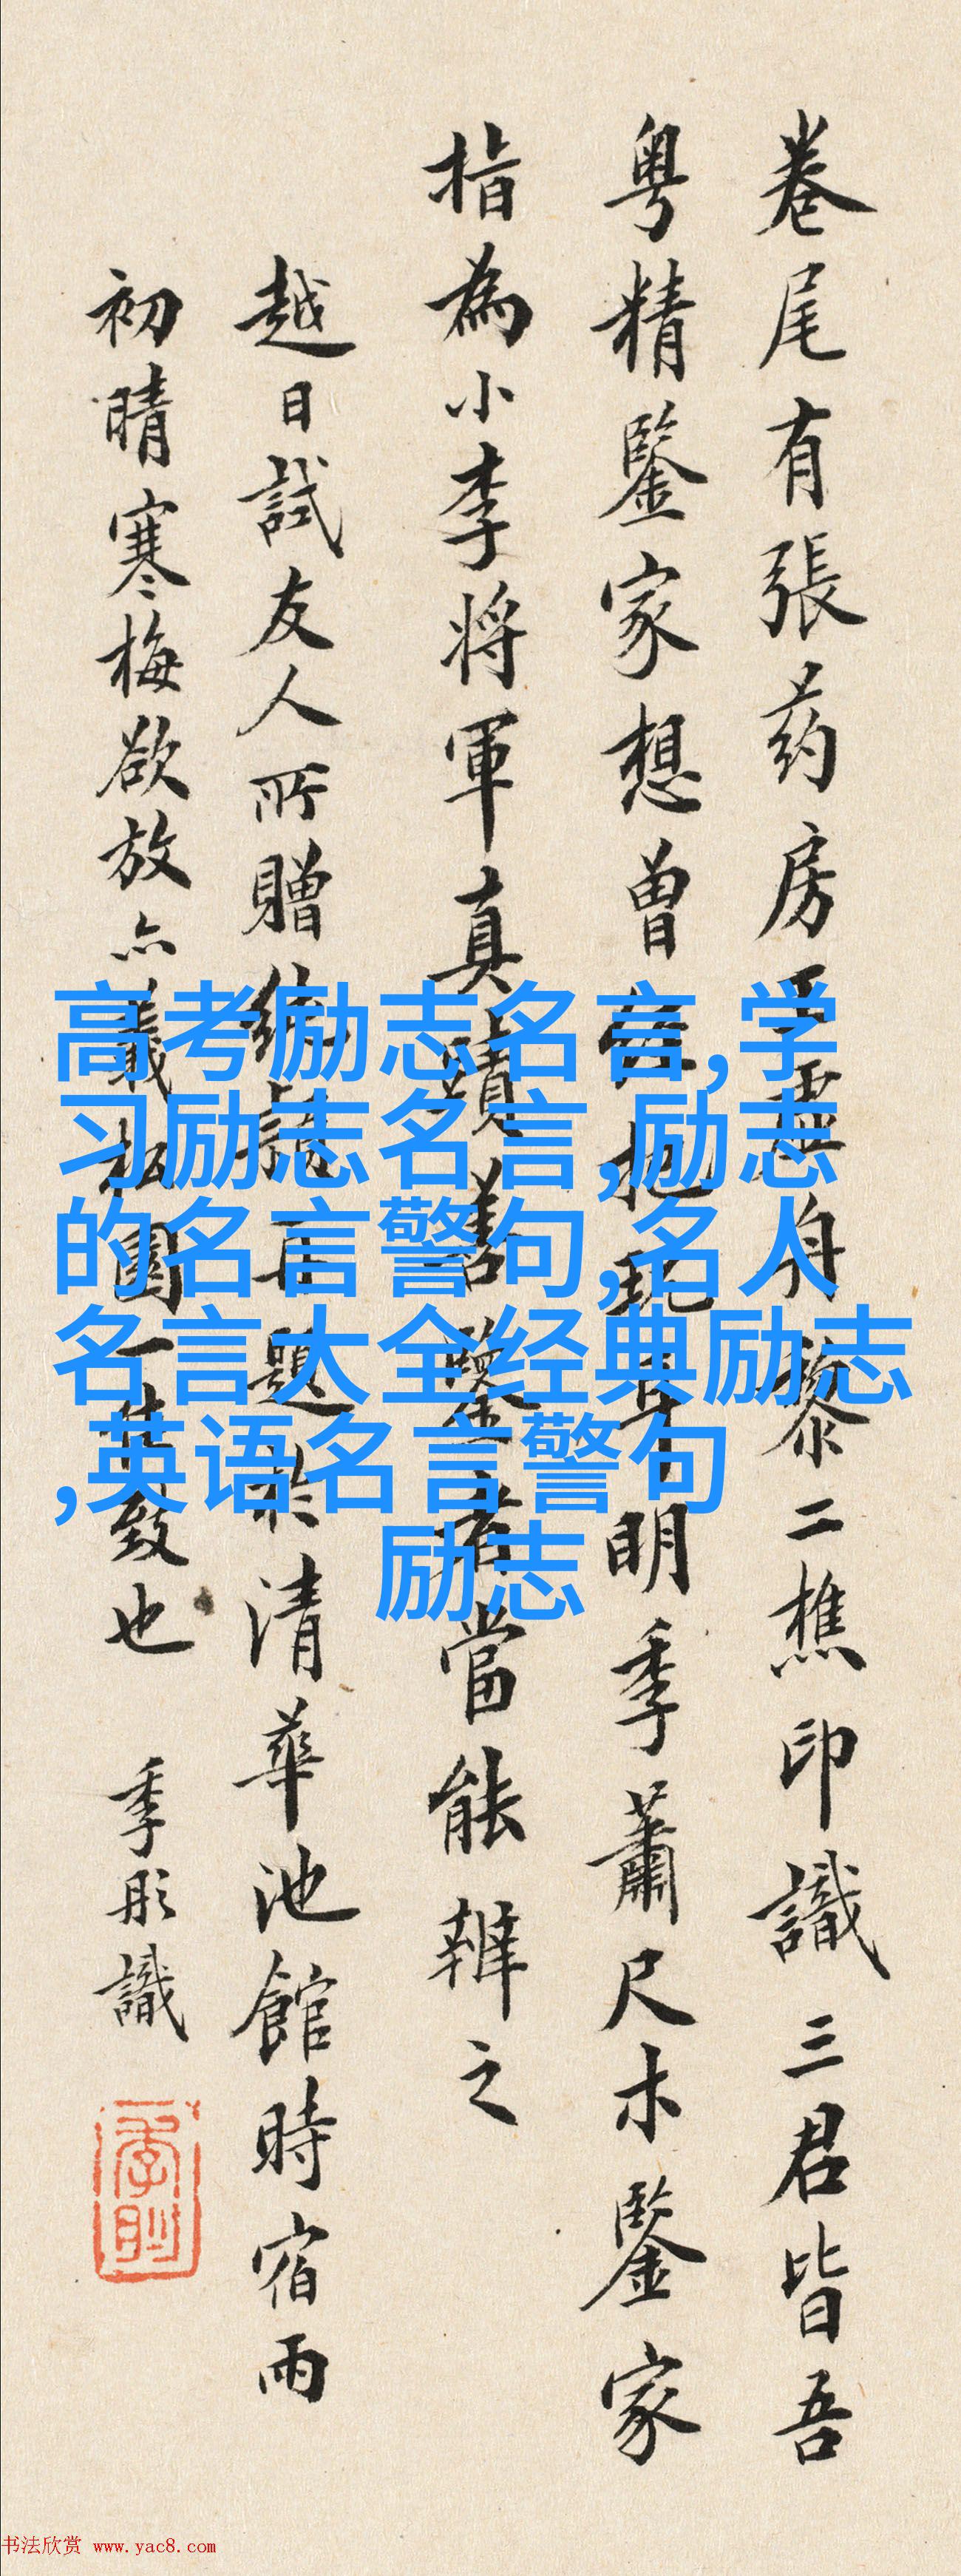 卷尾有張药房字畫舟黎二樵印識三君皆吾
粤精鑒家想曾明季蕭尺木鑒家
指為小李将軍真蹟善鑒者當能辨之
越日試友人所贈題於清華池館時宿雨
初晴寒梅欲放亦義私園一佳致也
季彤識
高考励志名言,学
习励志名言,励志
的名言警句,名人
名言大全经典励志
,英语名言警句
励志
书法欣赏 www.yac8.com